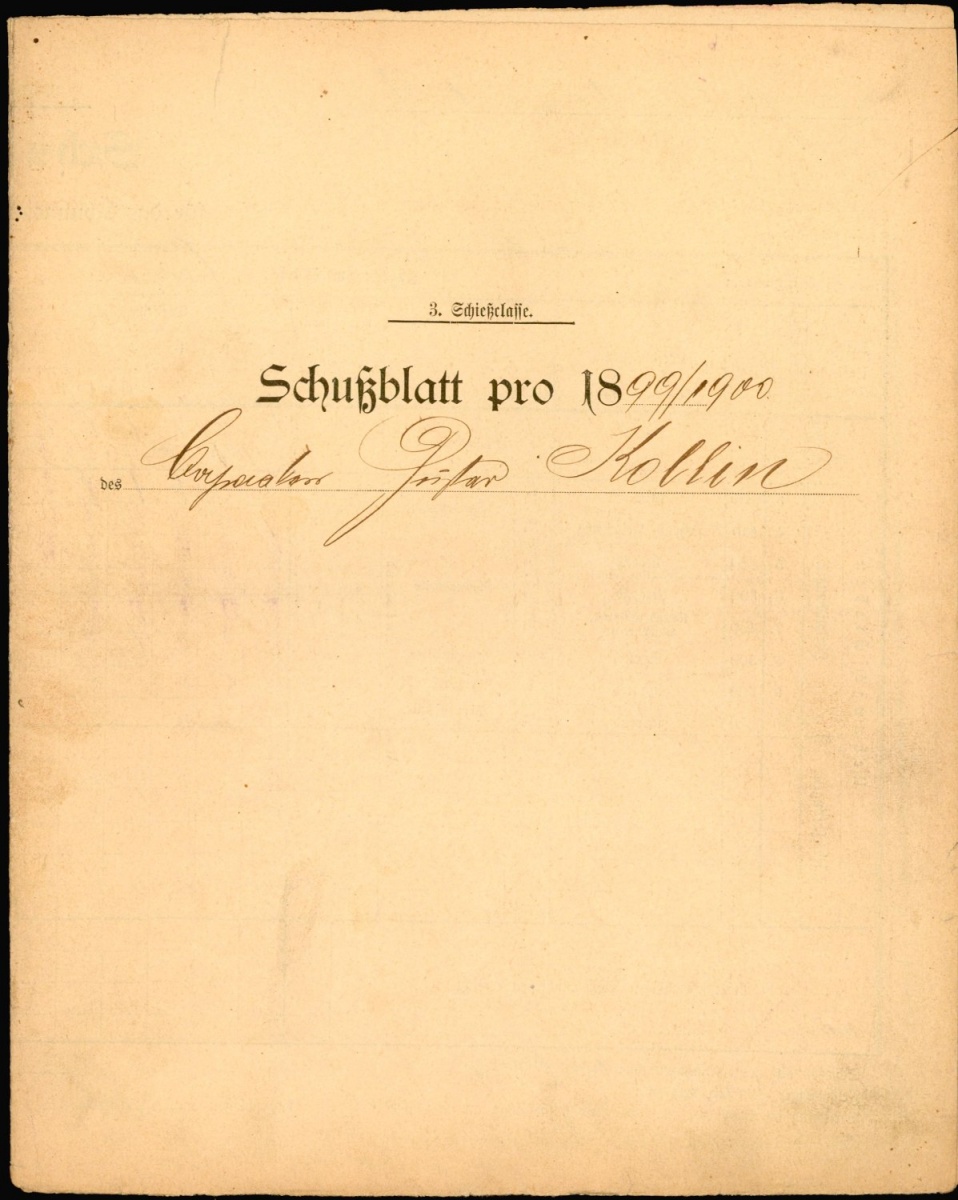 3. Schießclasse.
Schußblatt pro 1899/1900
des Gustav Kollin